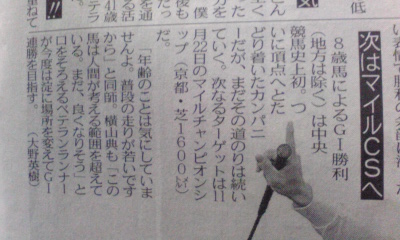 低
気
次はマイルCSへ
８歳馬によるGⅠ勝利
（地方は除く）は中央
競馬史上初。つ
いに頂点へとた
どり着いたカンパニ
ーだが、まだその道のりは続い
ていく。次なるターゲットは11
月22日のマイルチャンピオンシ
ップ（京都・芝1600㍍）
だ。
「年齢のことは気にしていま
せんよ。普段の走りが若いです
から」と同師。横山典も「この
馬は人間が考える範囲を超えて
いる。まだ、良くなりそう」と
口をそろえるベテランランナー
が今度は淀に場所を変えてGⅠ
連勝を目指す。（大野英樹）
方を
僕
だった
後も
41歳
る活
テラ
重ねて
!!